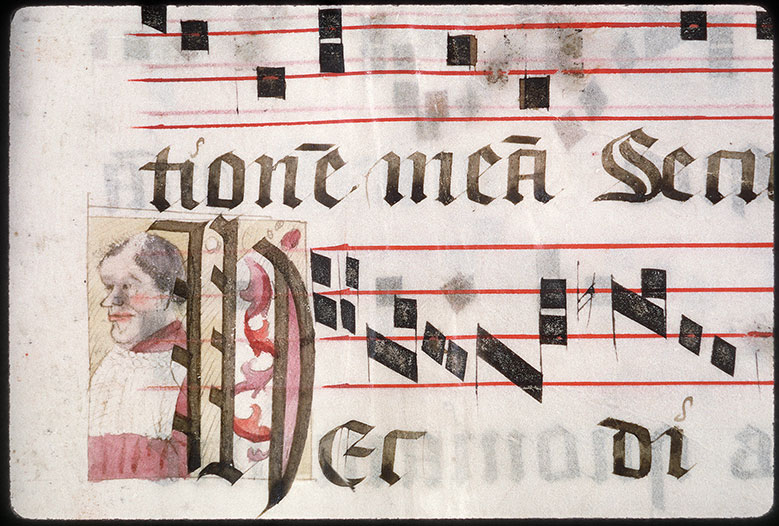 tionē meā Secu
Hec di